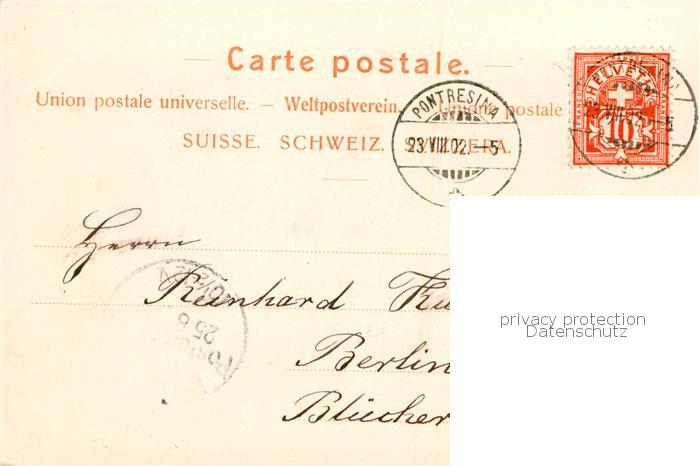 Carte postale.
Union postale universelle. — Weltpostverein. — Unione postale
SUISSE. SCHWEIZ. SVIZZERA.
PONTRESINA
23.VIII.02.–5
HELVETIA
10
Herrn
Reinhard
Berlin
Blücher
25 8
privacy protection
Datenschutz